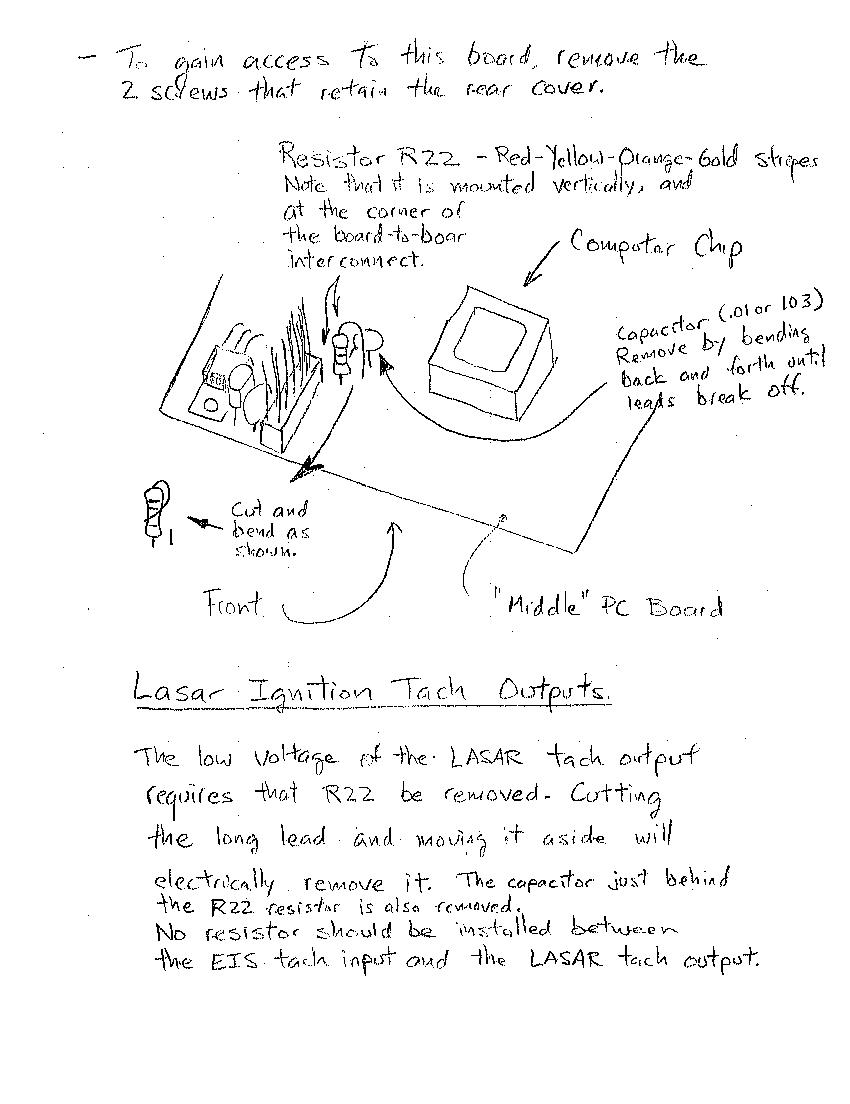 - To gain access to this board, remove the
2 screws that retain the rear cover.
Resistor R22 - Red-Yellow-Orange-Gold stripes
Note that it is mounted vertically, and
at the corner of
the board-to-boar
interconnect.
Computer Chip
Capacitor (.01 or 103)
Remove by bending
back and forth until
leads break off.
Cut and
bend as
shown.
Front
"Middle" PC Board
Lasar Ignition Tach Outputs.
The low voltage of the LASAR tach output
requires that R22 be removed. Cutting
the long lead and moving it aside will
electrically remove it. The capacitor just behind
the R22 resistor is also removed.
No resistor should be installed between
the EIS tach input and the LASAR tach output.